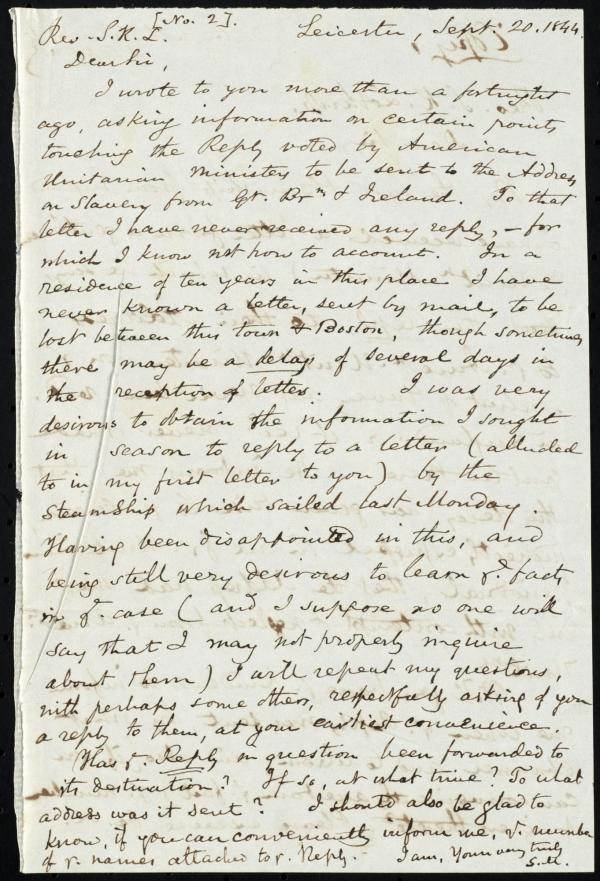 [No. 2].
Rev. S. K. L. Leicester, Sept. 20. 1844.
Dear Sir,
I wrote to you more than a fortnight
ago, asking information on certain points
touching the Reply voted by American
Unitarian Ministers to be sent to the Address
on Slavery from Gt. Brn & Ireland. To that
letter I have never received any reply, – for
which I know not how to account. In a
residence of ten years in this place I have
never known a letter, sent by mail, to be
lost between this town & Boston, though sometimes
there may be a delay of several days in
the reception of letters. I was very
desirous to obtain the information I sought
in season to reply to a letter (alluded
to in my first letter to you) by the
Steamship which sailed last Monday.
Having been disappointed in this, and
being still very desirous to learn ye. facts
in ye. case (and I suppose no one will
say that I may not properly inquire
about them) I will repeat my questions,
with perhaps some others, respectfully asking of you
a reply to them, at your earliest convenience.
Has ye. Reply in question been forwarded to
its destination? If so, at what time? To what
address was it sent? I should also be glad to
know, if you can conveniently inform me, ye. number
of ye. names attached to ye. Reply. I am, Yours very truly
S. M.